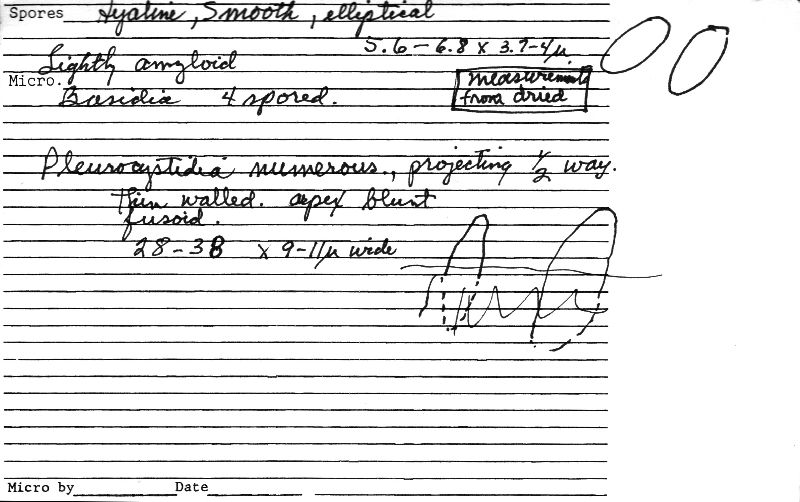 Spores Hyaline, Smooth, elliptical
5.6 - 6.8 x 3.7-4µ
Lightly amyloid
Micro.
measurements
from dried
Basidia 4 spored.
Pleurocystidia numerous., projecting 1/2 way.
Thin walled. apex blunt
fusoid.
28-38 x 9-11µ wide
Micro by Date